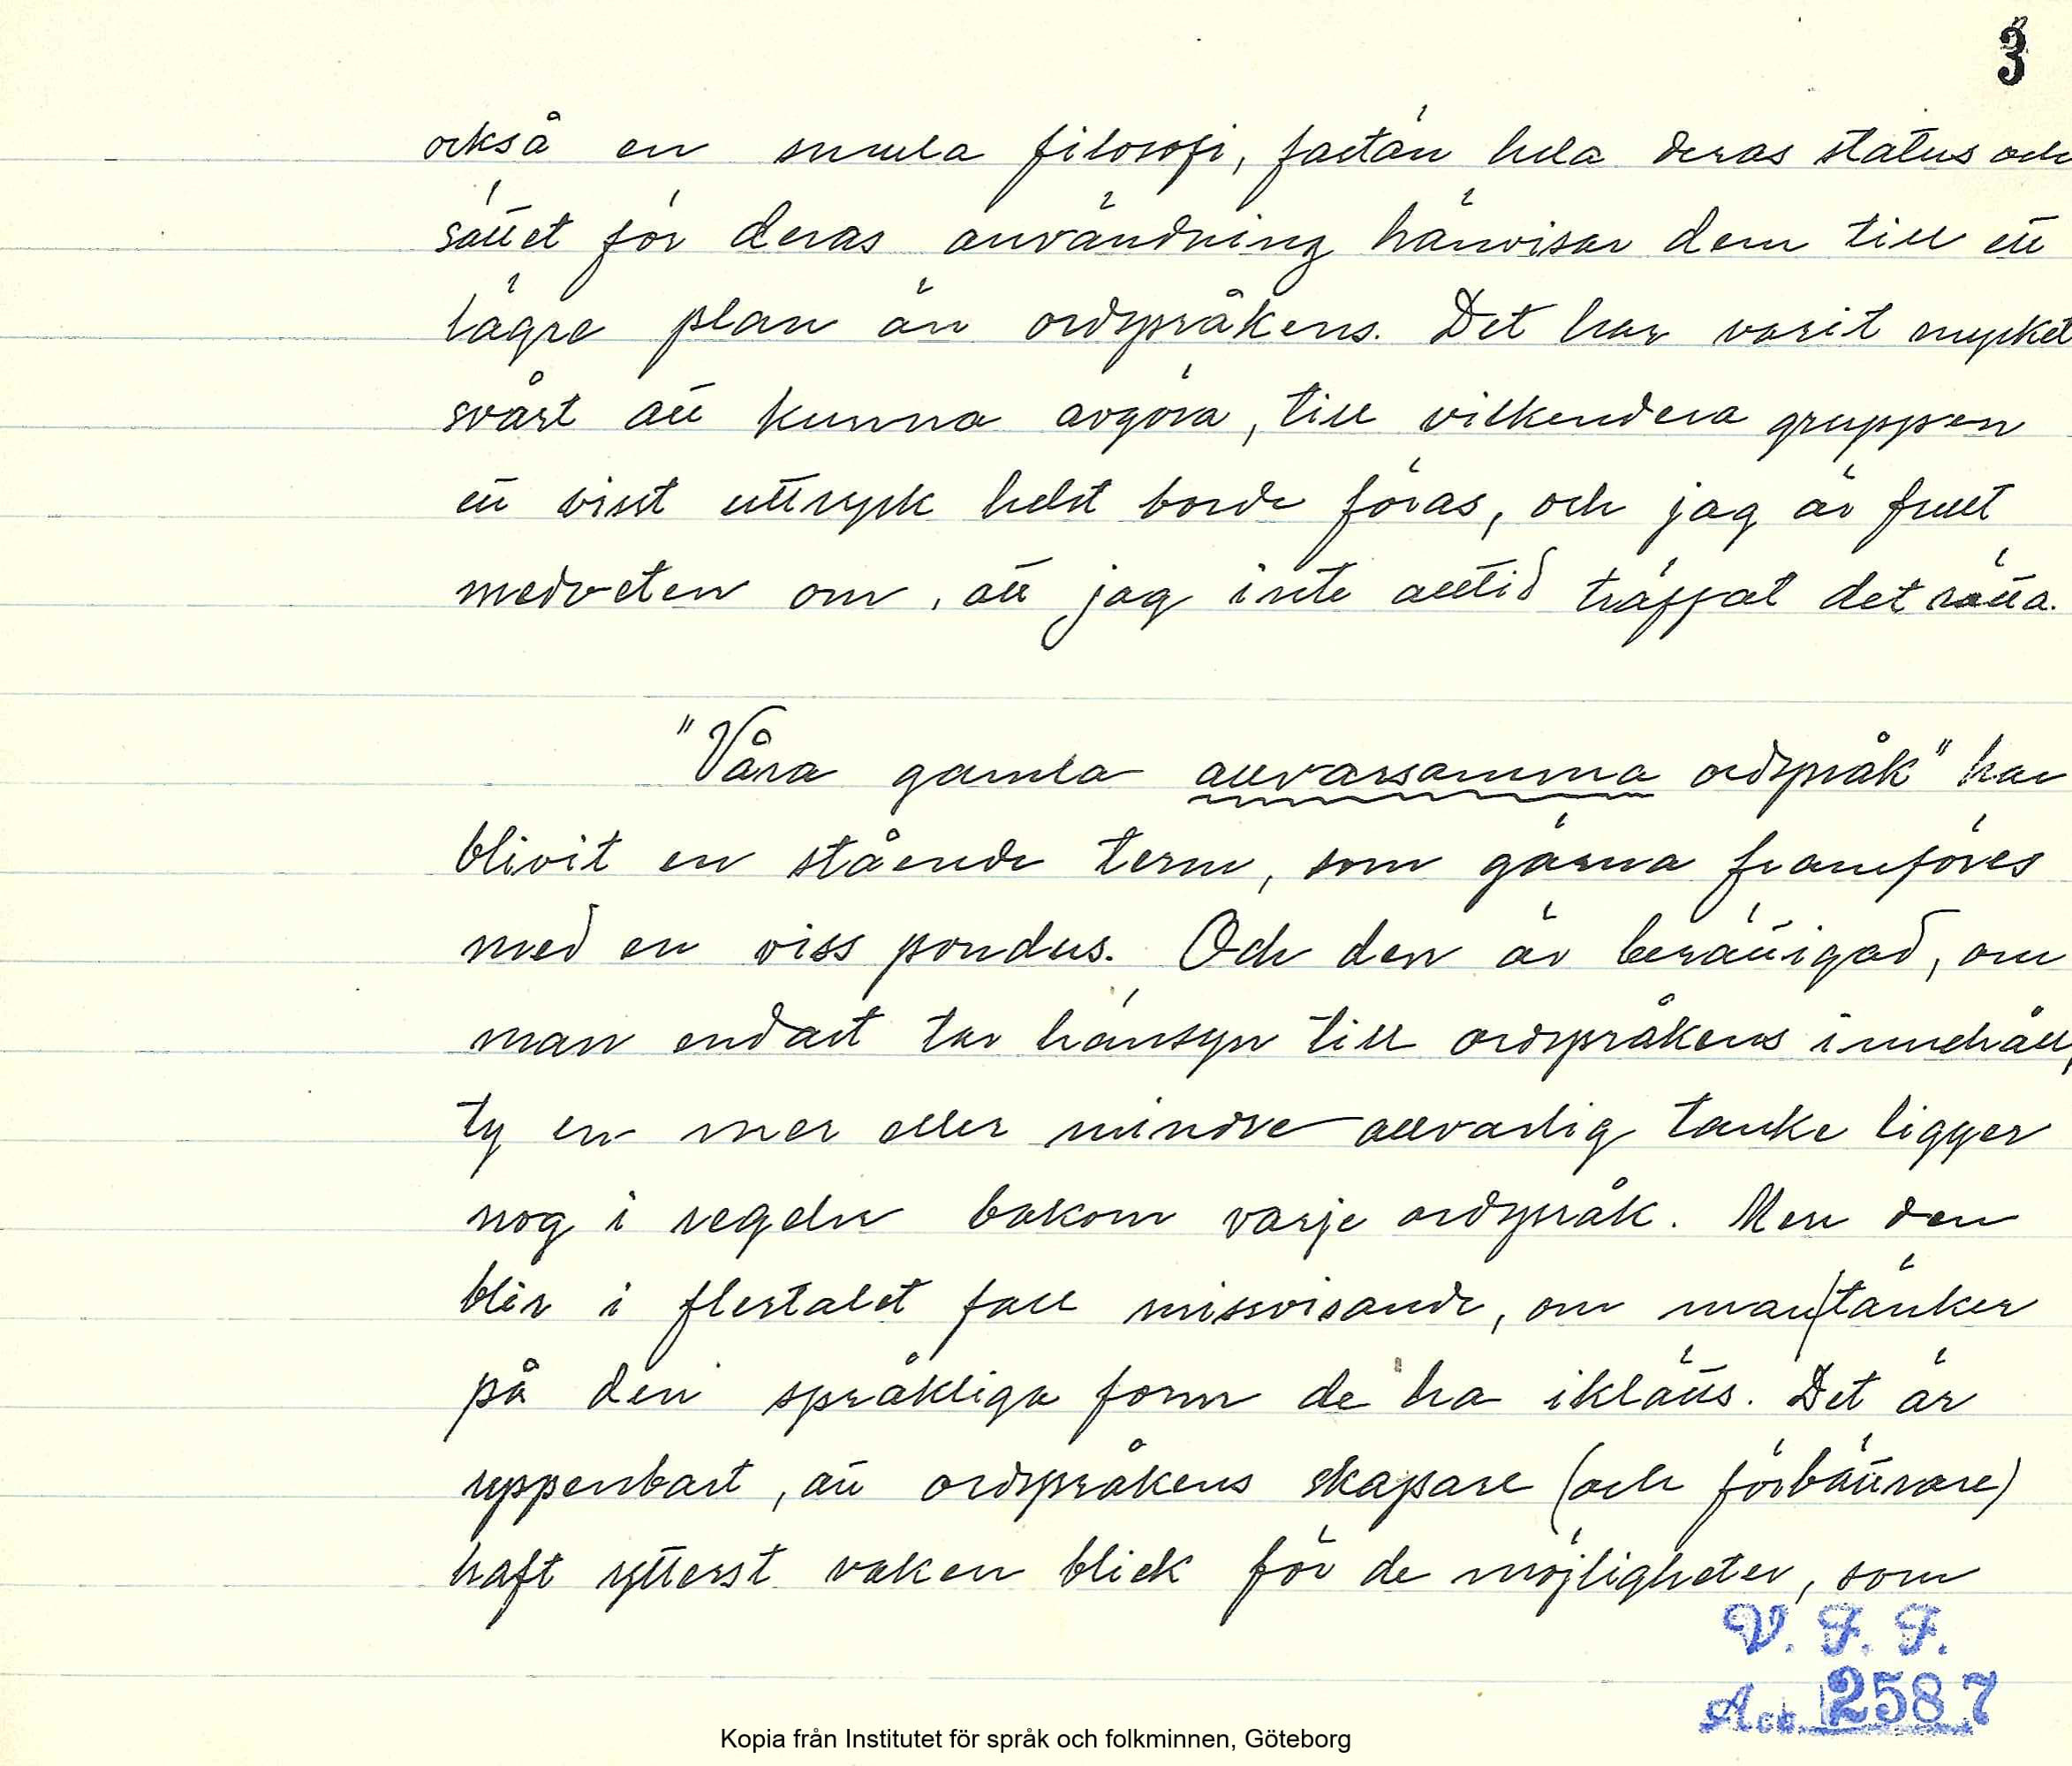 3
också en smula filosofi, fastän hela deras status och
sättet för deras användning hänvisar dem till ett
lägre plan än ordspråkens. Det har varit mycket
svårt att kunna avgöra, till vilkendera gruppen
ett visst uttryck helst borde föras, och jag är fullt
medveten om, att jag inte alltid träffat det rätta.
"Våra gamla allvarsamma ordspråk" har
blivit en stående term, som gärna framföres
med en viss pondus. Och den är berättigad, om
man endast tar hänsyn till ordspråkens innehåll,
ty en mer eller mindre allvarlig tanke ligger
nog i regeln bakom varje ordspråk. Men den
blir i flertalet fall missvisande, om man tänker
på den språkliga form de ha iklätts. Det är
uppenbart, att ordspråkens skapare (och förbättrare)
haft ytterst vaken blick för de möjligheter, som
V. F. F.
Acc. 2587
Kopia från Institutet för språk och folkminnen, Göteborg